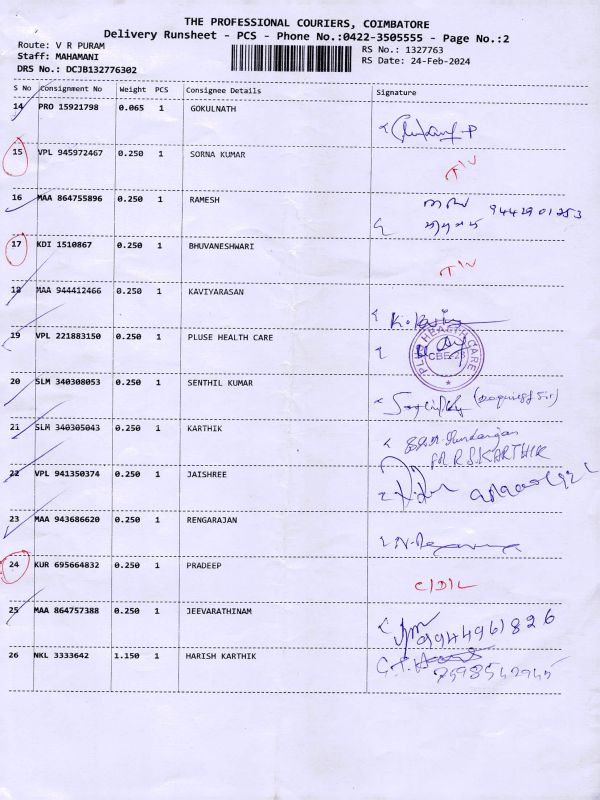 THE PROFESSIONAL COURIERS, COIMBATORE
Delivery Runsheet - PCS - Phone No.:0422-3505555 - Page No.:2
Route: V R PURAM
Staff: MAHAMANI
DRS No.: DCJB132776302
RS No.: 1327763
RS Date: 24-Feb-2024
S No Consignment No Weight PCS Consignee Details Signature
14 PRO 15921798 0.065 1 GOKULNATH
15 VPL 945972467 0.250 1 SORNA KUMAR
16 MAA 864755896 0.250 1 RAMESH 9442901253
17 KDI 1510867 0.250 1 BHUVANESHWARI
18 MAA 944412466 0.250 1 KAVIYARASAN
19 VPL 221883150 0.250 1 PLUSE HEALTH CARE
20 SLM 340308053 0.250 1 SENTHIL KUMAR
21 SLM 340305043 0.250 1 KARTHIK
R.S.KARTHIK
22 VPL 941350374 0.250 1 JAISHREE
23 MAA 943686620 0.250 1 RENGARAJAN
24 KUR 695664832 0.250 1 PRADEEP C/D/L
25 MAA 864757388 0.250 1 JEEVARATHINAM
26 NKL 3333642 1.150 1 HARISH KARTHIK